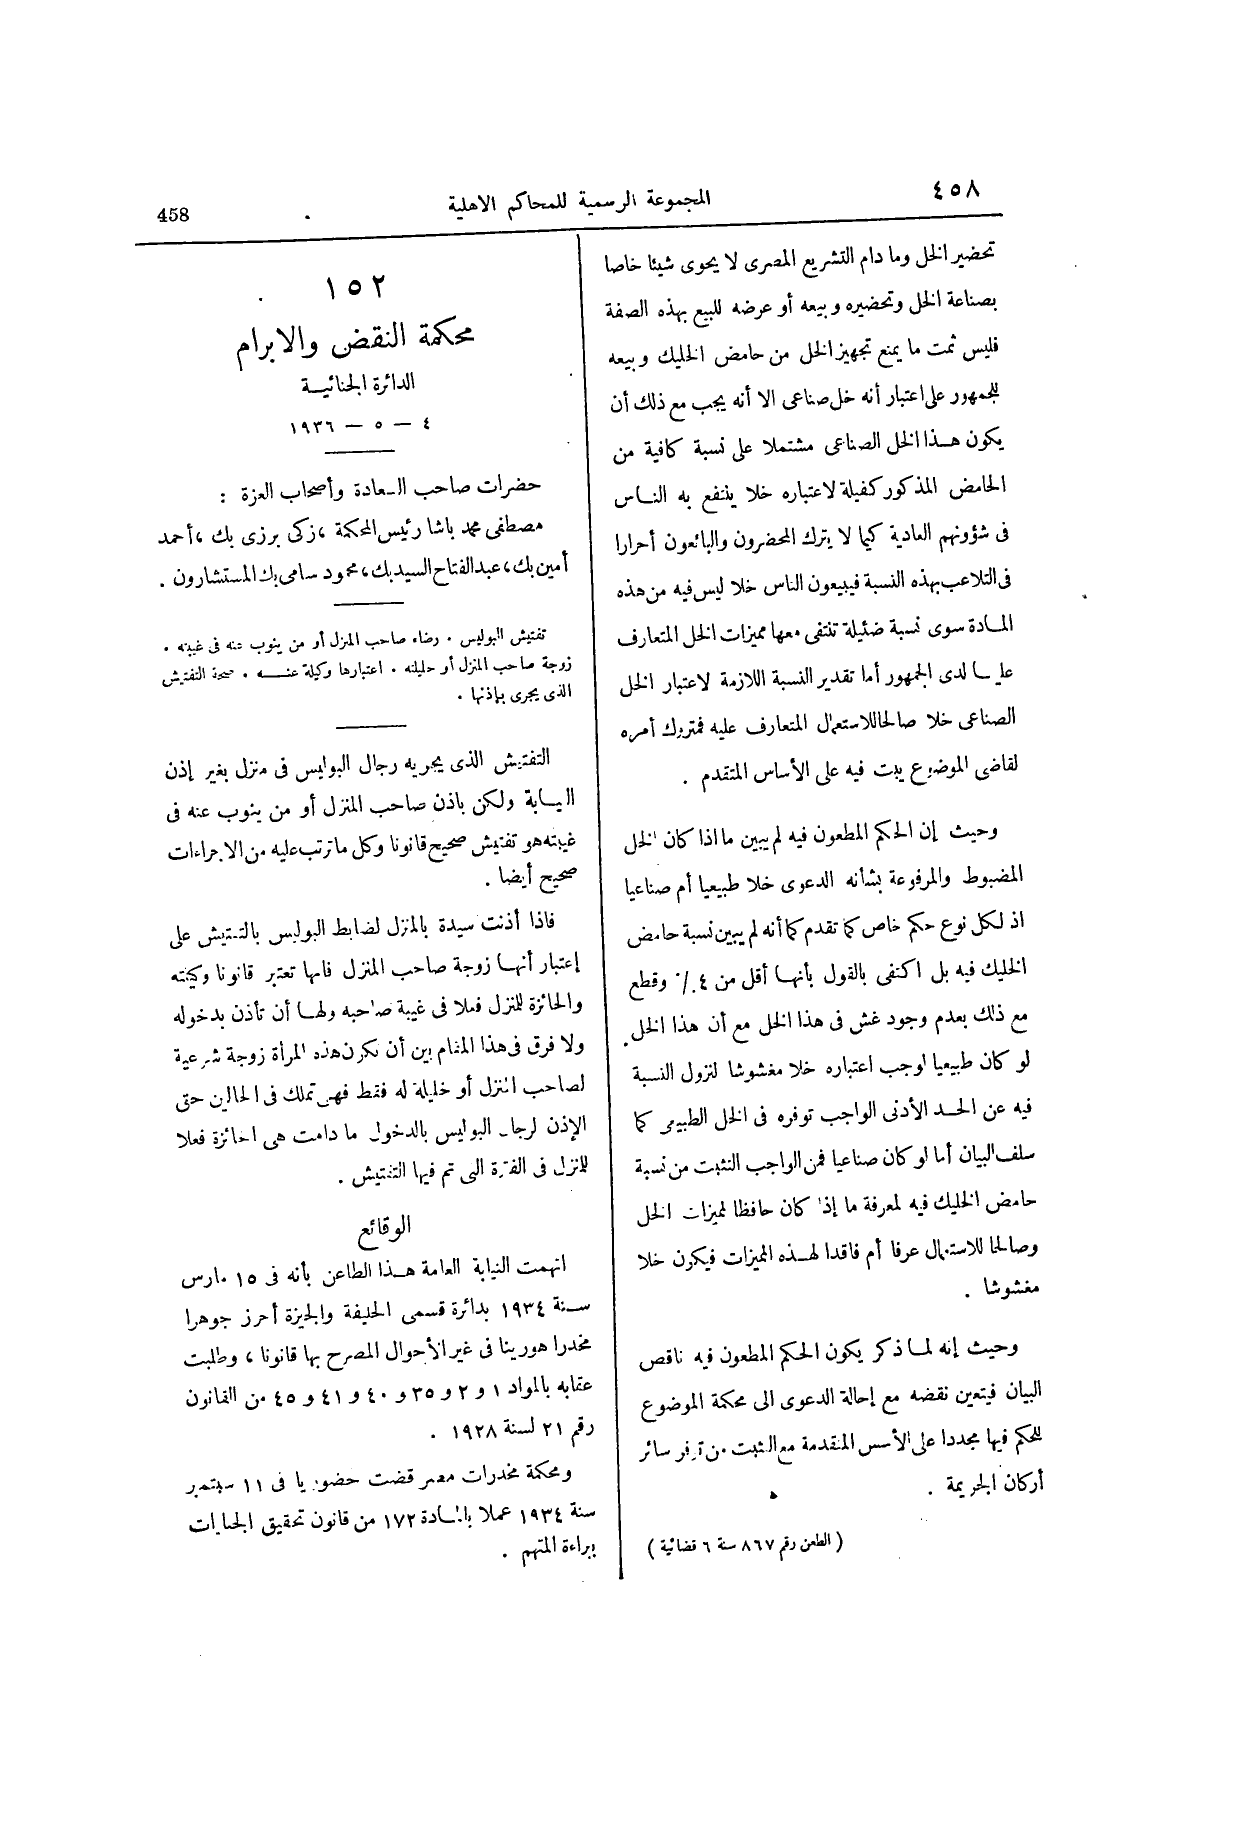 ٤٥٨
المجموعة الرسمية للمحاكم الاهلية
458
تحضير الخل وما دام التشريع المصرى لا يحوى شيئا خاصا
بصناعة الخل وتحضيره وبيعه أو عرضه للبيع بهذه الصفة
فليس ثمت ما يمنع تجهيز الخل من حامض الخليك وبيعه
للجمهور على اعتبار أنه خل صناعى الا أنه يجب مع ذلك أن
يكون هـذا الخل الصناعى مشتملا على نسبة كافية من
الحامض المذكور كفيلة لاعتباره خلا ينتفع به النـاس
فى شؤونهم العادية كيما لا يترك المحضرون والبائعون أحرارا
فى التلاعب بهذه النسبة فيبيعون الناس خلا ليس فيه من هذه
المـادة سوى نسبة ضئيلة تنتفى معها مميزات الخل المتعارف
عليـا لدى الجمهور أما تقدير النسبة اللازمة لاعتبار الخل
الصناعى خلا صالحا للاستعمال المتعارف عليه فمتروك أمره
لقاضى الموضوع يبت فيه على الأساس المتقدم .
وحيث إن الحكم المطعون فيه لم يبين ما اذا كان الخل
المضبوط والمرفوعة بشأنه الدعوى خلا طبيعيا أم صناعيا
اذ لكل نوع حكم خاص كما تقدم كما أنه لم يبين نسبة حامض
الخليك فيه بل اكتفى بالقول بأنهـا أقل من ٤ ٪ وقطع
مع ذلك بعدم وجود غش فى هذا الخل مع أن هذا الخل
لو كان طبيعيا لوجب اعتباره خلا مغشوشا لنزول النسبة
فيه عن الحـد الأدنى الواجب توفره فى الخل الطبيعى كما
سلف البيان أما لو كان صناعيا فمن الواجب التثبت من نسبة
حامض الخليك فيه لمعرفة ما إذا كان حافظا لميزات الخل
وصالحا للاستعمال عرفا أم فاقدا لهـذه الميزات فيكون خلا
مغشوشا .
وحيث إنه لمـا ذكر يكون الحكم المطعون فيه ناقص
البيان فيتعين نقضه مع إحالة الدعوى الى محكمة الموضوع
للحكم فيها مجددا على الأسس المتقدمة مع التثبت من توفر سائر
أركان الجريمة .
( الطعن رقم ٨٦٧ سنة ٦ قضائية )
١٥٢
محكمة النقض والابرام
الدائرة الجنائيـة
٤ — ٥ — ١٩٣٦
حضرات صاحب السعادة وأصحاب العزة :
مصطفى محمد باشا رئيس المحكمة ، زكى برزى بك ، أحمد
أمين بك ، عبد الفتاح السيد بك ، محمود سامى بك المستشارون .
تفتيش البوليس . رضاء صاحب المنزل أو من ينوب عنه فى غيبته .
زوجة صاحب المنزل أو حليلته . اعتبارها وكيلة عنـــه . صحة التفتيش
الذى يجرى باذنها .
التفتيش الذى يجريه رجال البوليس فى منزل بغير إذن
النيـابة ولكن باذن صاحب المنزل أو من ينوب عنه فى
غيبته هو تفتيش صحيح قانونا وكل ما ترتب عليه من الاجراءات
صحيح أيضا .
فاذا أذنت سيدة بالمنزل لضابط البوليس بالتفتيش على
إعتبار أنهـا زوجة صاحب المنزل فانها تعتبر قانونا وكيلته
والحائزة للمنزل فعلا فى غيبة صاحبه ولهـا أن تأذن بدخوله
ولا فرق فى هذا المقام بين أن تكون هذه المرأة زوجة شرعية
لصاحب المنزل أو خليلة له فقط فهى تملك فى الحالين حق
الإذن لرجال البوليس بالدخول ما دامت هى الحائزة فعلا
للمنزل فى الفترة التى تم فيها التفتيش .
الوقائع
اتهمت النيابة العامة هـذا الطاعن بأنه فى ١٥ مارس
سـنة ١٩٣٤ بدائرة قسمى الخليفة والجيزة أحرز جوهرا
مخدرا هورينا فى غير الأحوال المصرح بها قانونا ، وطلبت
عقابه بالمواد ١ و ٢ و ٣٥ و ٤٠ و ٤١ و ٤٥ من القانون
رقم ٢١ لسنة ١٩٢٨ .
ومحكمة مخدرات مصر قضت حضوريا فى ١١ سبتمبر
سنة ١٩٣٤ عملا بالمـادة ١٧٢ من قانون تحقيق الجنايات
ببراءة المتهم .